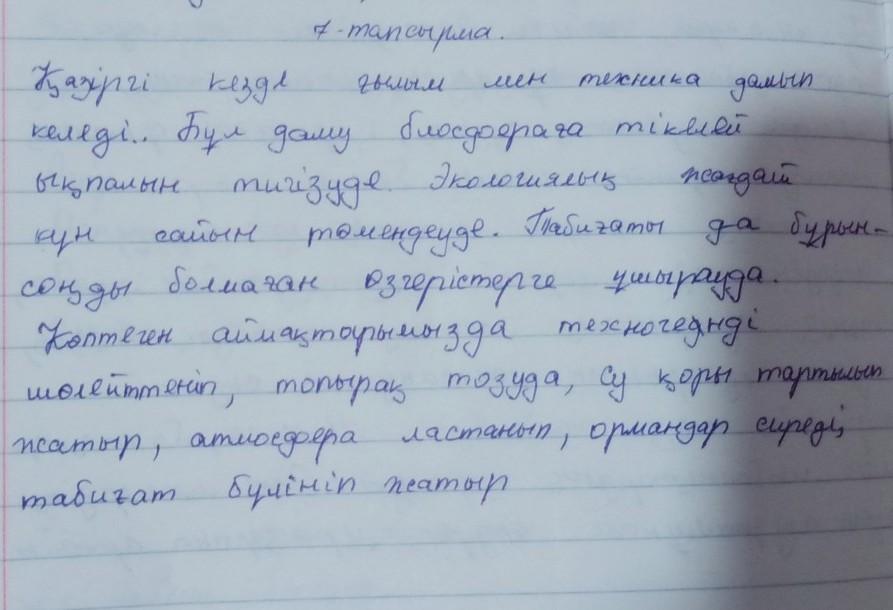 7-тапсырма.
Қазіргі кезде ғылым мен техника дамып
келеді.. Бұл даму биосфераға тікелей
ықпалын тигізуде. Экологиялық жағдай
күн сайын төмендеуде. Табиғаты да бұрын-
соңды болмаған өзгерістерге ұшырауда.
Көптеген аймақтарымызда техногеднді
шөлейттеніп, топырақ тозуда, су қоры тартылып
жатыр, атмосфера ластанып, ормандар сиреді,
табиғат бүлініп жатыр